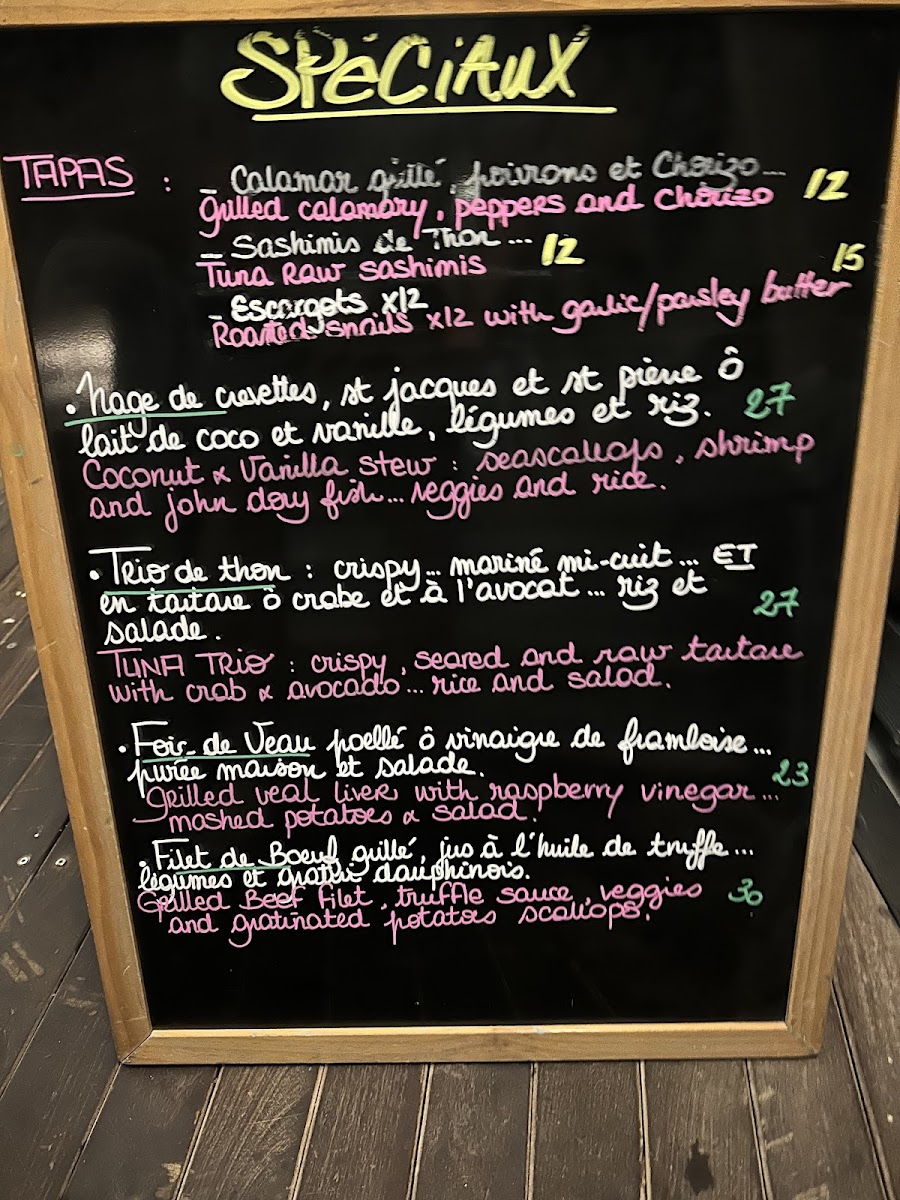 SPÉCIAUX
TAPAS : - Calamar grillé, poivrons et Chorizo... 12
Grilled calamary, peppers and chorizo
- Sashimis de Thon ... 12
Tuna Raw sashimis
- Escargots x12 15
Roasted snails x12 with garlic/parsley butter
. Nage de crevettes, st jacques et st pierre ô
lait de coco et vanille, légumes et riz. 27
Coconut & Vanilla stew : seascallops, shrimp
and john dory fish... veggies and rice.
. Trio de thon : crispy... mariné mi-cuit... ET
en tartare ô crabe et à l'avocat ... riz et 27
salade.
TUNA TRIO : crispy, seared and raw tartare
with crab & avocado... rice and salad.
. Foie de Veau poellé ô vinaigre de framboise...
purée maison et salade. 23
grilled veal liver with raspberry vinegar ...
mashed potatoes & salad.
. Filet de Boeuf grillé, jus à l'huile de truffe...
légumes et gratin dauphinois.
Grilled Beef filet, truffle sauce, veggies 30
and gratinated potatoes scallops.